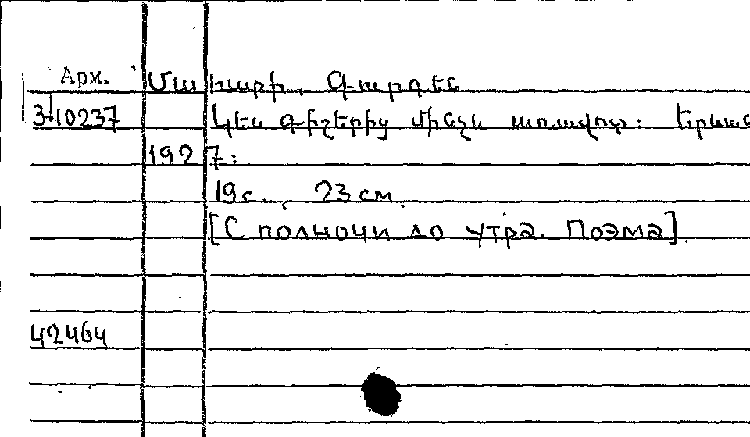 Арм. Մահարի, Գուրգեն
3-10237 Կես գիշերից մինչև առավոտ։ Երևան
1927։
19 с., 23 см.
[С полночи до утра. Поэма]
42464